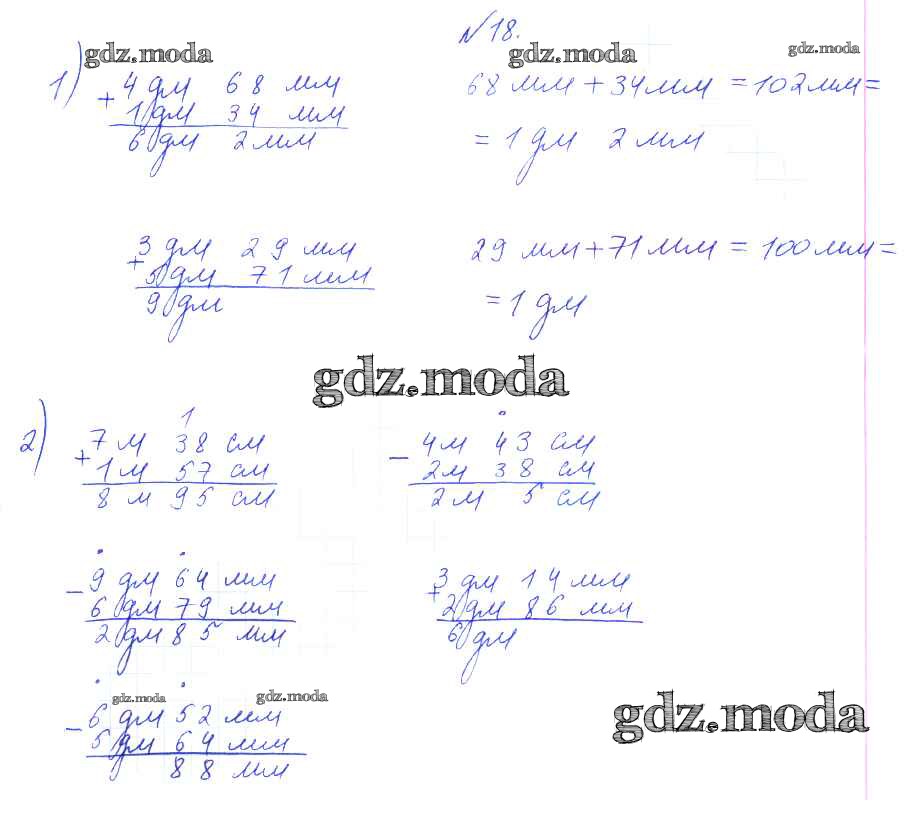 №18.
gdz.moda gdz.moda gdz.moda
1) + 4 дм 68 мм
1 дм 34 мм
6 дм 2 мм
68 мм + 34 мм = 102 мм =
= 1 дм 2 мм
+ 3 дм 29 мм
5 дм 71 мм
9 дм
29 мм + 71 мм = 100 мм =
= 1 дм
gdz.moda
2) 1
+ 7 м 38 см
1 м 57 см
8 м 95 см
− 4 м 43 см
2 м 38 см
2 м 5 см
− 9 дм 64 мм
6 дм 79 мм
2 дм 85 мм
+ 3 дм 14 мм
2 дм 86 мм
6 дм
gdz.moda gdz.moda
− 6 дм 52 мм
5 дм 64 мм
88 мм
gdz.moda